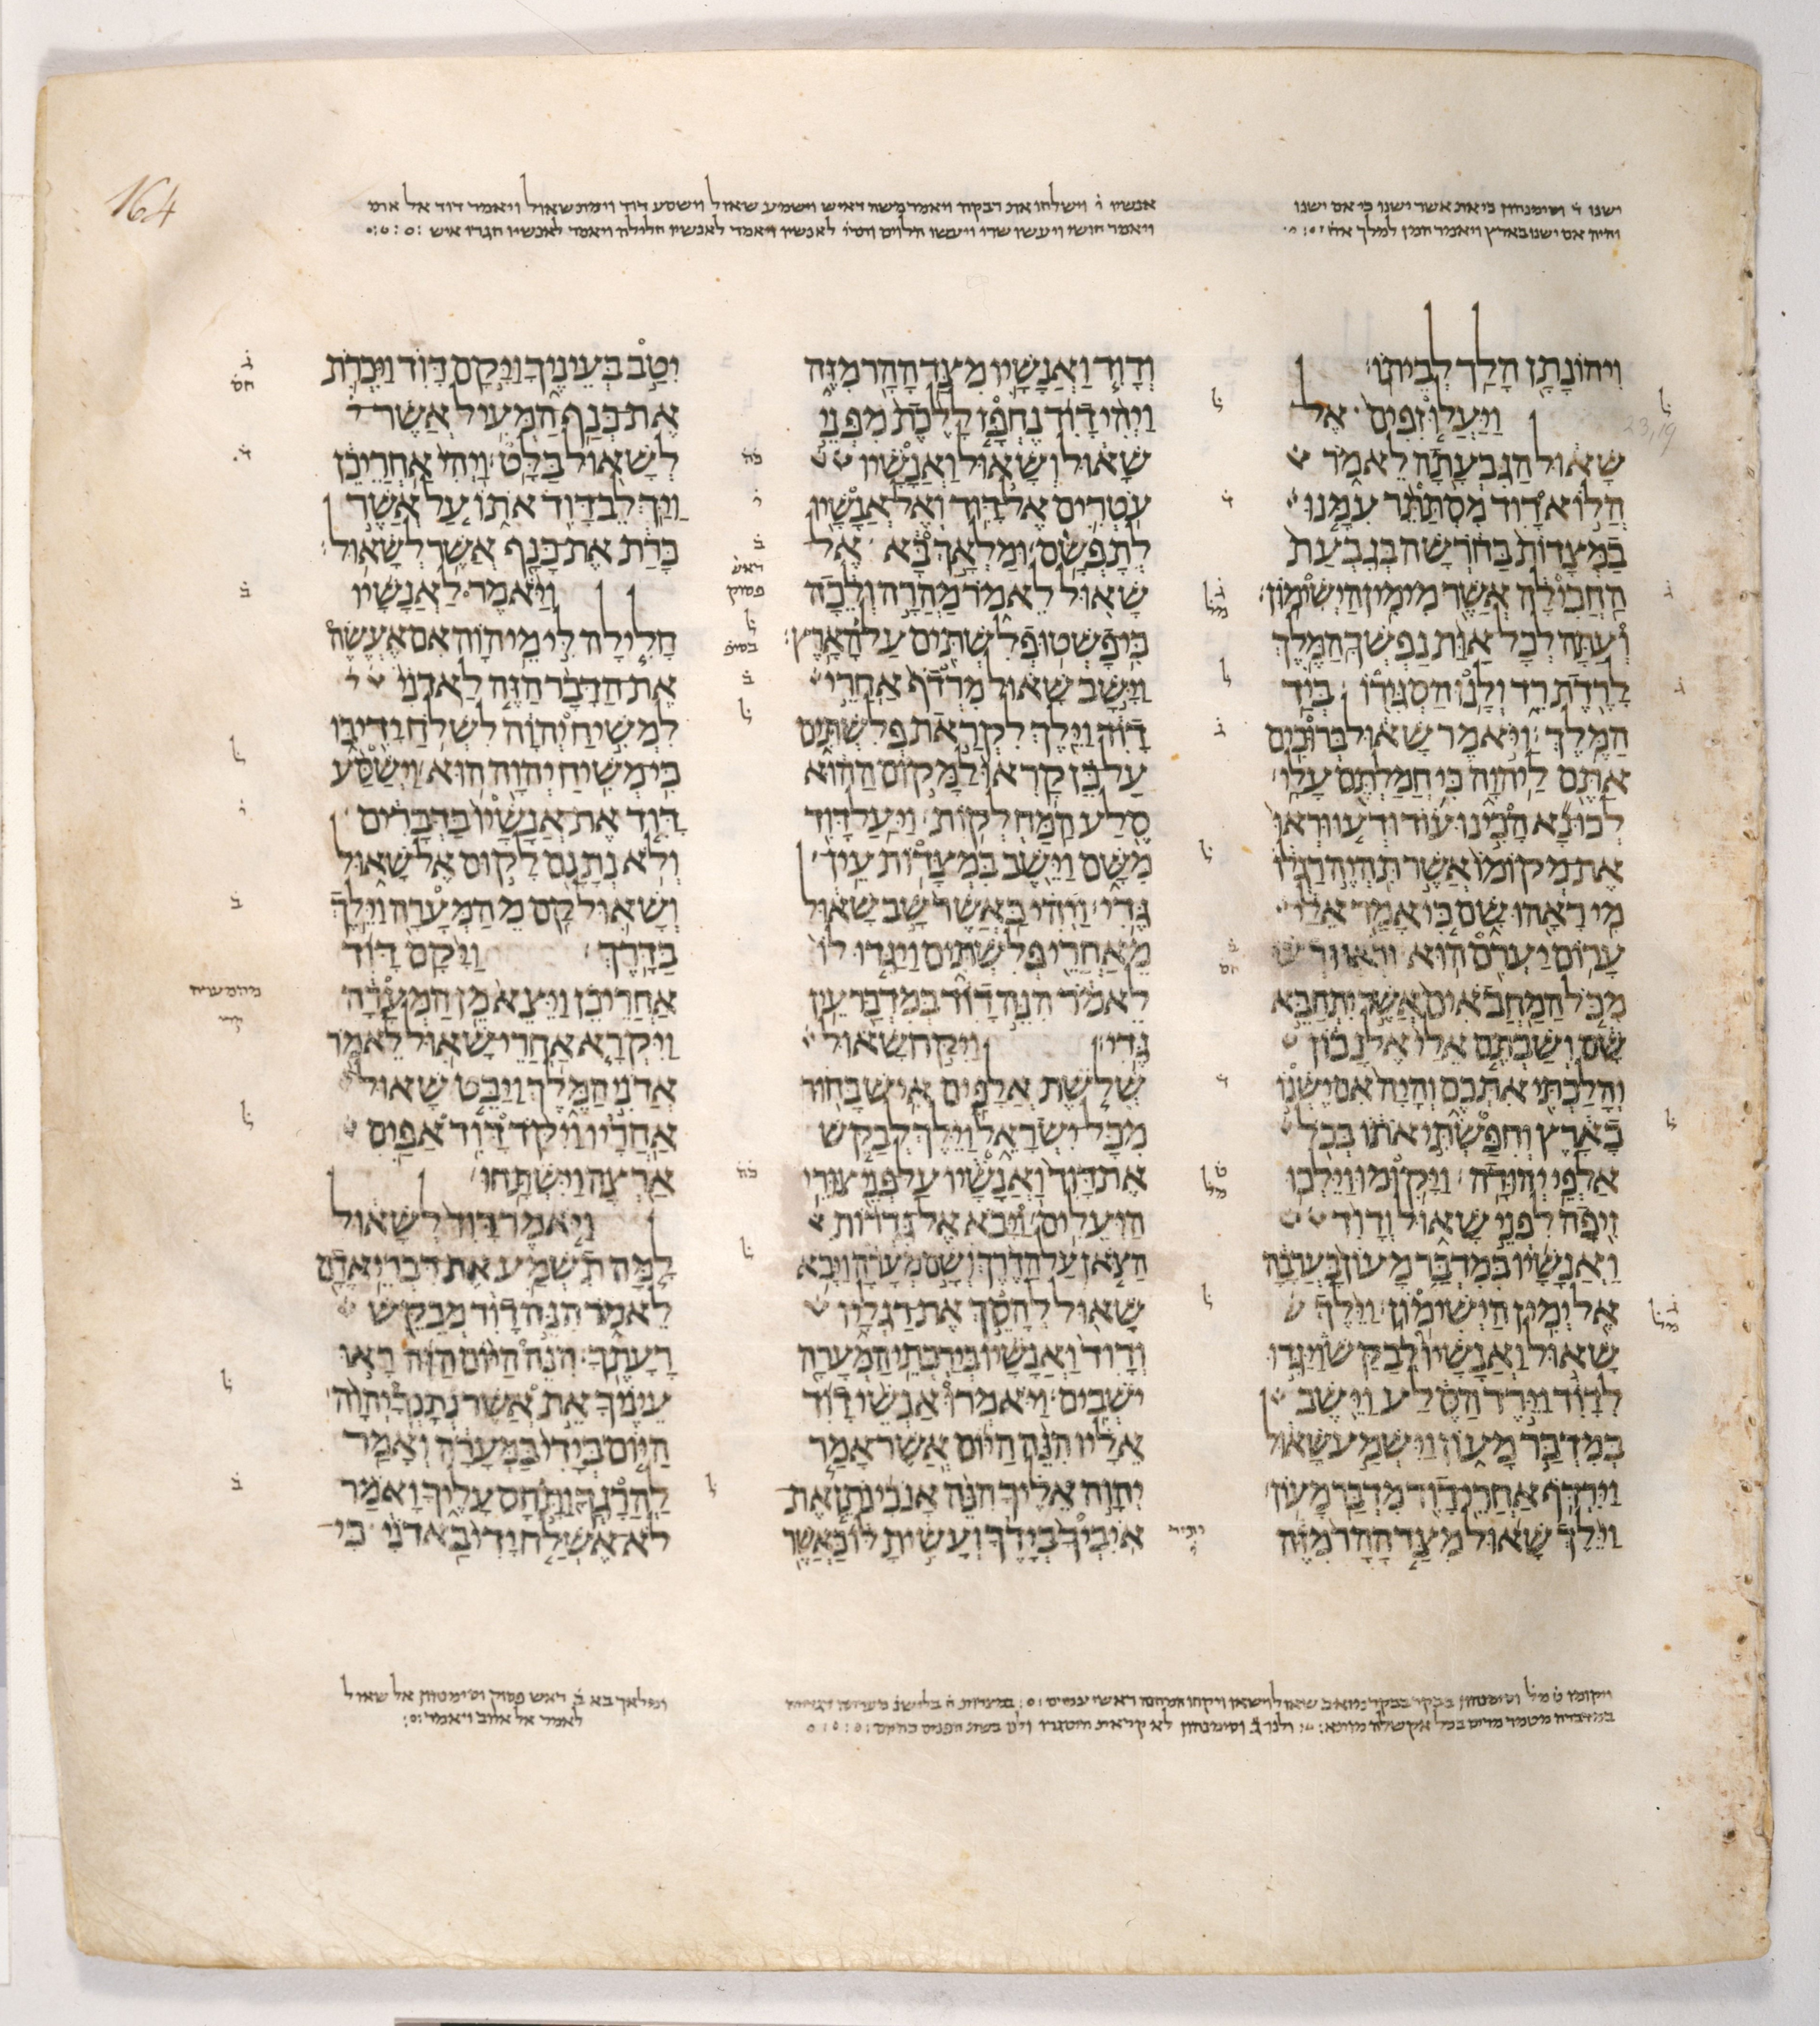 164
ישנו ד וסימנהון כי את אשר ישנו כי אם ישנו
והיה אם ישנו בארץ ויאמר המן למלך
אנשיו י וישלחו את רבקה ויאמר משה וישמע שאול וישסע דוד וימת שאול ויאמר דוד אל
ויאמר חושי ויעשו לאנשיו ויאמר לאנשיו חלילה ויאמר לאנשיו חגרו איש
ויהונתן הלך לביתו
ויעלו זפים אל
שאול הגבעתה לאמר
הלוא דוד מסתתר עמנו
במצדות בחרשה בגבעת
החכילה אשר מימין הישימון
ועתה לכל אות נפשך המלך
לרדת רד ולנו הסגירו ביד
המלך ויאמר שאול ברוכים
אתם ליהוה כי חמלתם עלי
לכו נא הכינו עוד ודעו וראו
את מקומו אשר תהיה רגלו
מי ראהו שם כי אמר אלי
ערום יערם הוא וראו ודעו
מכל המחבאים אשר יתחבא
שם ושבתם אלי אל נכון
והלכתי אתכם והיה אם ישנו
בארץ וחפשתי אתו בכל
אלפי יהודה ויקומו וילכו
זיפה לפני שאול ודוד
ואנשיו במדבר מעון בערבה
אל ימין הישימון וילך
שאול ואנשיו לבקש ויגדו
לדוד וירד הסלע וישב
במדבר מעון וישמע שאול
וירדף אחרי דוד מדבר מעון
וילך שאול מצד ההר מזה
ודוד ואנשיו מצד ההר מזה
ויהי דוד נחפז ללכת מפני
שאול ושאול ואנשיו
עטרים אל דוד ואל אנשיו
לתפשם ומלאך בא אל
שאול לאמר מהרה ולכה
כי פשטו פלשתים על הארץ
וישב שאול מרדף אחרי
דוד וילך לקראת פלשתים
על כן קראו למקום ההוא
סלע המחלקות ויעל דוד
משם וישב במצדות עין
גדי ויהי כאשר שב שאול
מאחרי פלשתים ויגדו לו
לאמר הנה דוד במדבר עין
גדי ויקח שאול
שלשת אלפים איש בחור
מכל ישראל וילך לבקש
את דוד ואנשיו על פני צורי
היעלים ויבא אל גדרות
הצאן על הדרך ושם מערה ויבא
שאול להסך את רגליו
ודוד ואנשיו בירכתי המערה
ישבים ויאמרו אנשי דוד
אליו הנה היום אשר אמר
יהוה אליך הנה אנכי נתן את
איביך בידך ועשית לו כאשר
יטב בעיניך ויקם דוד ויכרת
את כנף המעיל אשר
לשאול בלט ויהי אחרי כן
ויך לב דוד אתו על אשר
כרת את כנף אשר לשאול
ויאמר לאנשיו
חלילה לי מיהוה אם אעשה
את הדבר הזה לאדני
למשיח יהוה לשלח ידי בו
כי משיח יהוה הוא וישסע
דוד את אנשיו בדברים
ולא נתנם לקום אל שאול
ושאול קם מהמערה וילך
בדרך ויקם דוד
אחרי כן ויצא מן המערה
ויקרא אחרי שאול לאמר
אדני המלך ויבט שאול
אחריו ויקד דוד אפים
ארצה וישתחו
ויאמר דוד לשאול
למה תשמע את דברי אדם
לאמר הנה דוד מבקש
רעתך הנה היום הזה ראו
עיניך את אשר נתנך יהוה
היום בידי במערה ואמר
להרגך ותחס עליך ואמר
לא אשלח ידי באדני כי
ויקומו ט מל וסימנהון
ולנו ג וסימנהון לא קיראת הסגרו
ומלאך בא ב ראש פסוק וסימנהון אל שאול
לאמר אל איוב ויאמר